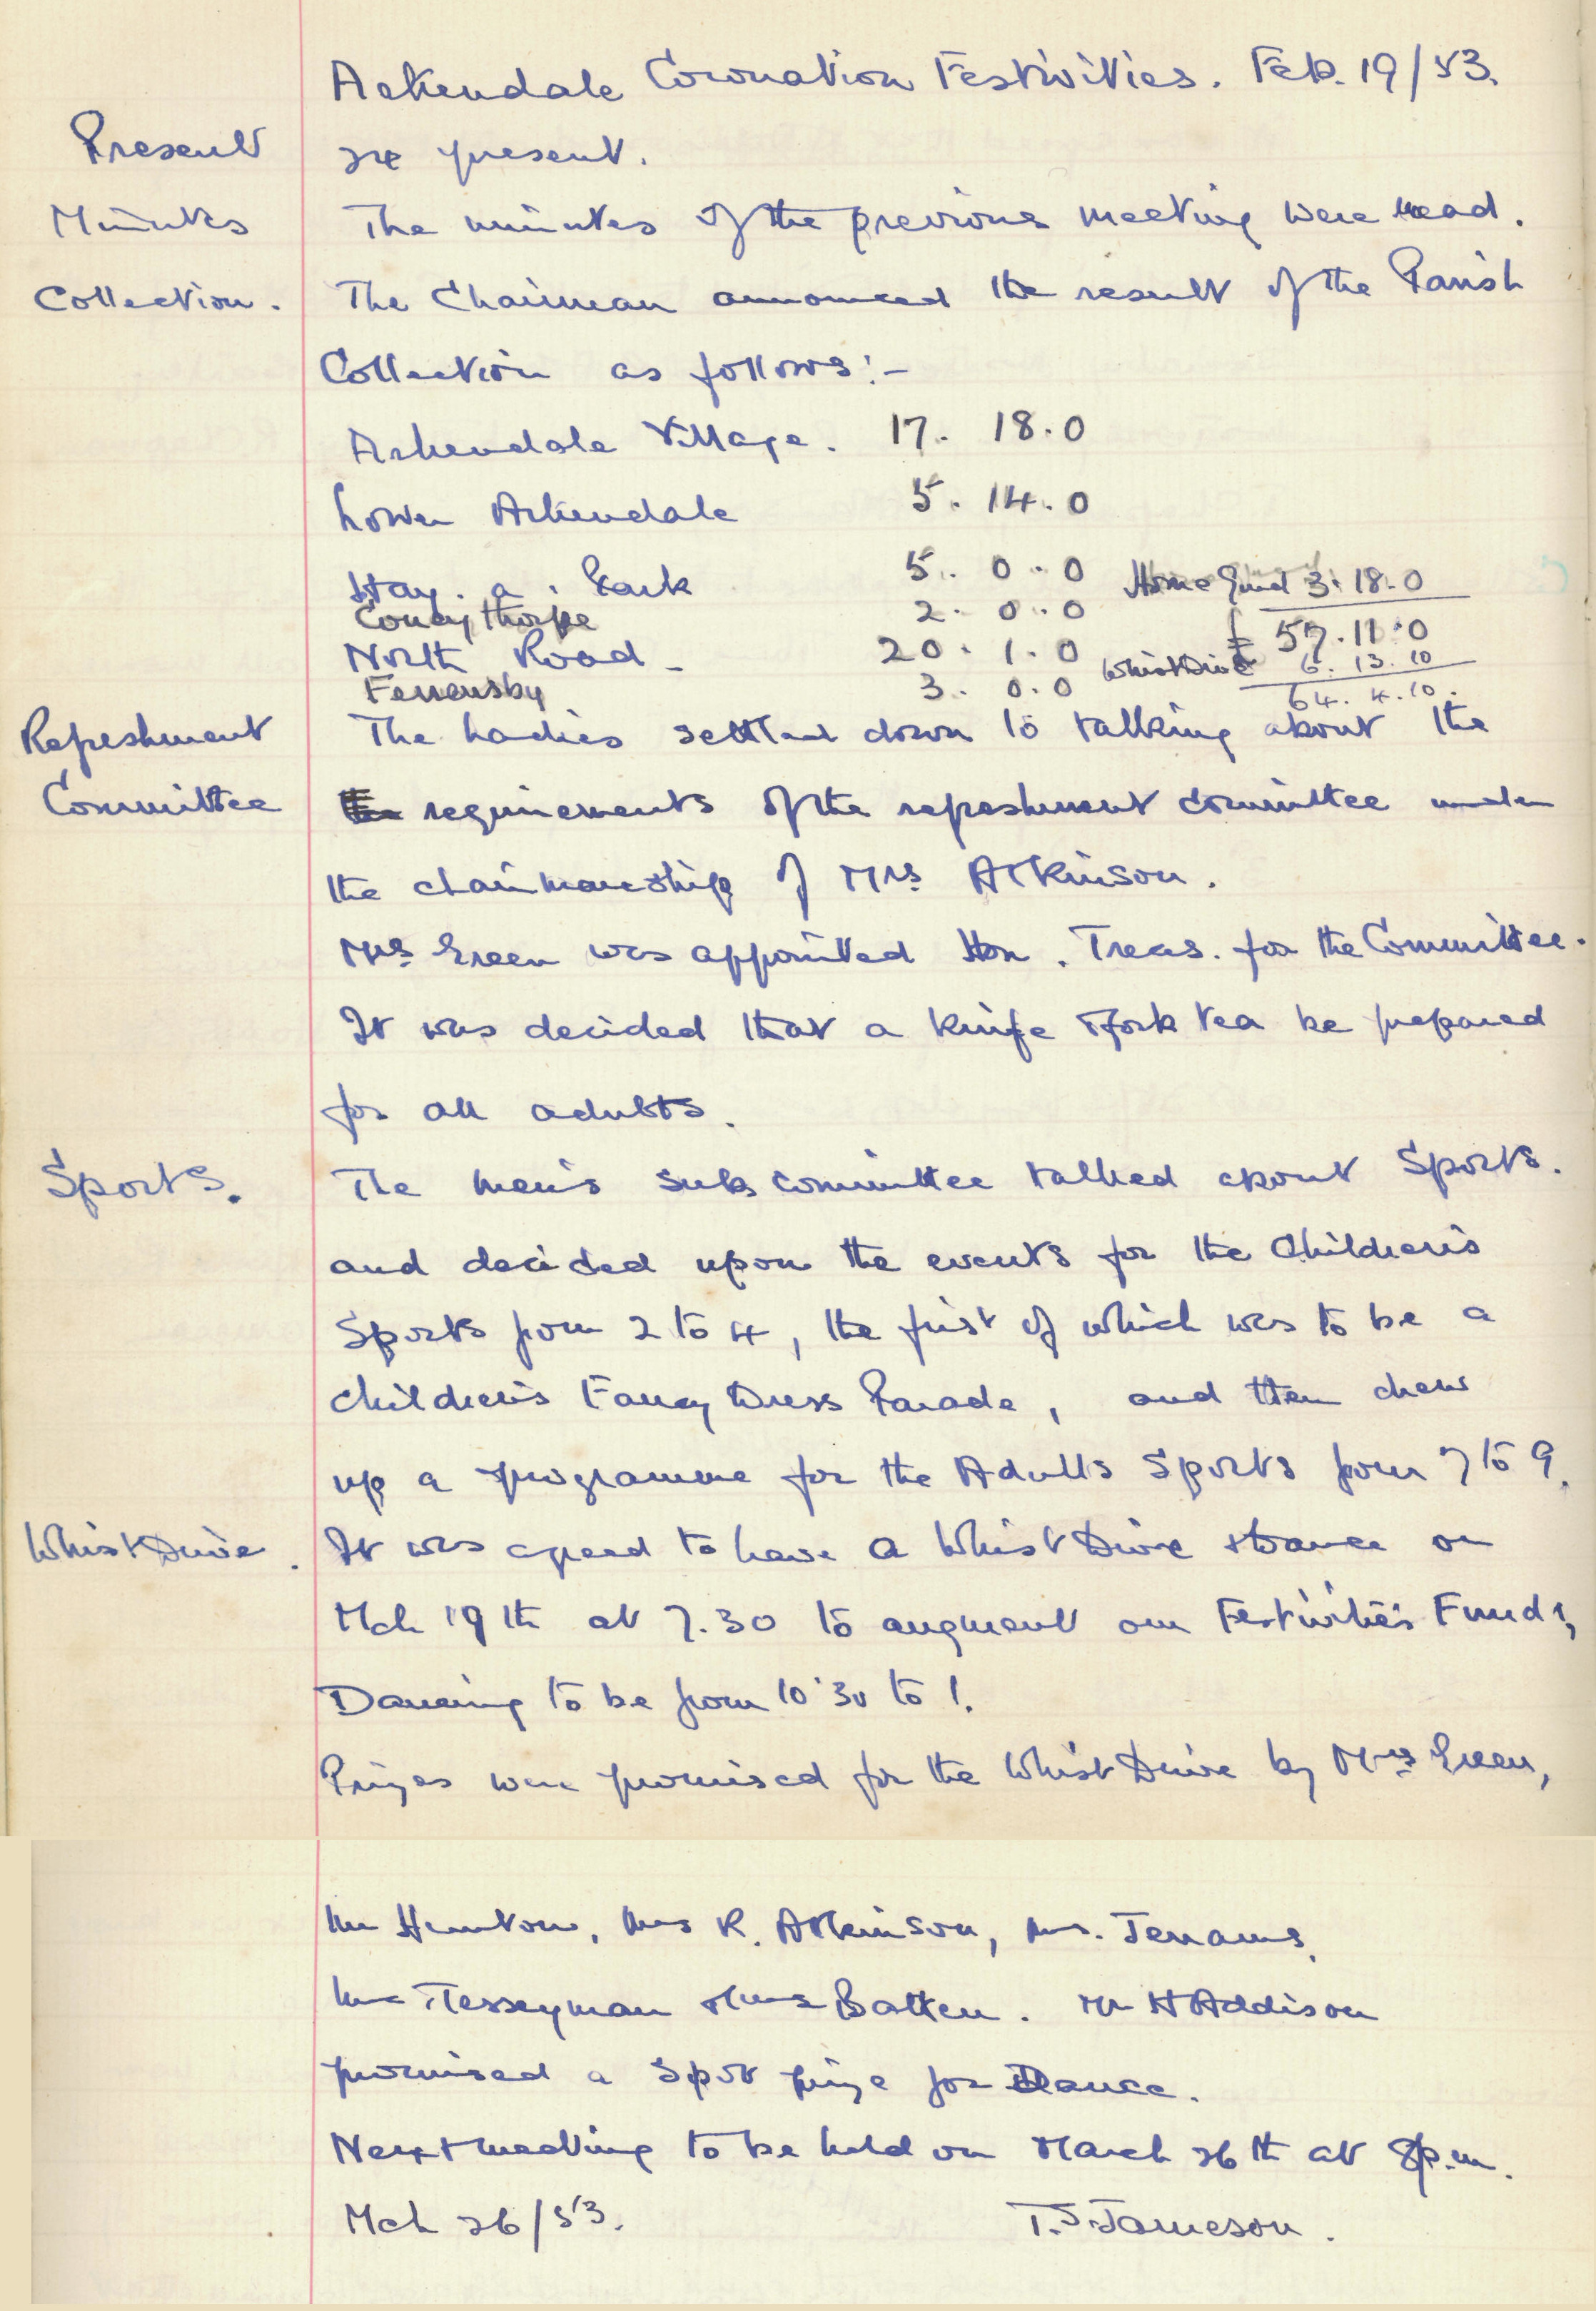 Arkendale Coronation Festivities. Feb. 19/53.
Present 24 present.
Minutes The minutes of the previous meeting were read.
Collection. The Chairman announced the result of the Parish
Collection as follows:-
Arkendale Village. 17. 18. 0
Lower Arkendale 5. 14. 0
Hay. a. Park 5. 0. 0 Home Fund 3. 18. 0
Coneythorpe 2. 0. 0 £ 57. 11. 0
North Road - 20. 1. 0 Whist Drive 6. 13. 10
Ferrensby 3. 0. 0 64. 4. 10.
Refreshment The Ladies settled down to talking about the
Committee requirements of the refreshment committee under
the chairmanship of Mrs Atkinson.
Mrs Green was appointed Hon. Treas. for the Committee.
It was decided that a knife & fork tea be prepared
for all adults.
Sports. The men's sub committee talked about Sports.
and decided upon the events for the Children's
Sports from 2 to 4, the first of which was to be a
children's Fancy Dress Parade, and then drew
up a programme for the Adults Sports from 7 to 9.
Whist Drive. It was agreed to have a Whist Drive & Dance on
Mch 19th at 7.30 to augment our Festivities Funds,
Dancing to be from 10.30 to 1.
Prizes were promised for the Whist Drive by Mrs Green,
Mr Hunton, Mrs R. Atkinson, Mrs. Jenams,
Mrs Tesseyman & Mrs Batten. Mr H Addison
promised a Spot prize for Dance.
Next meeting to be held on March 26th at 8p.m.
Mch 26/53. T.S. Jameson.